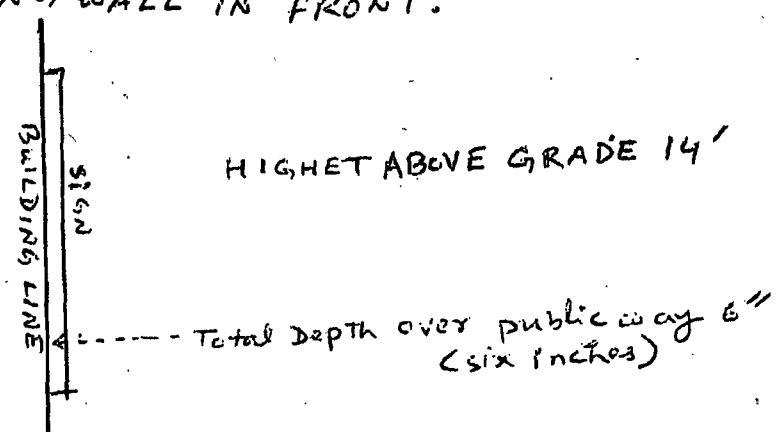 WALL IN FRONT.
SIGN
BUILDING LINE
HIGHET ABOVE GRADE 14'
Total Depth over public way 6"
(six inches)